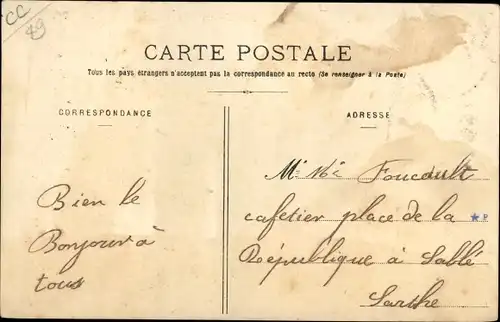 CC
49
CARTE POSTALE
Tous les pays étrangers n'acceptent pas la correspondance au recto (Se renseigner à la Poste)
CORRESPONDANCE
ADRESSE
Bien le
Bonjour à
tous
Mr Foucault
cafetier place de la
République à Sablé
Sarthe
P